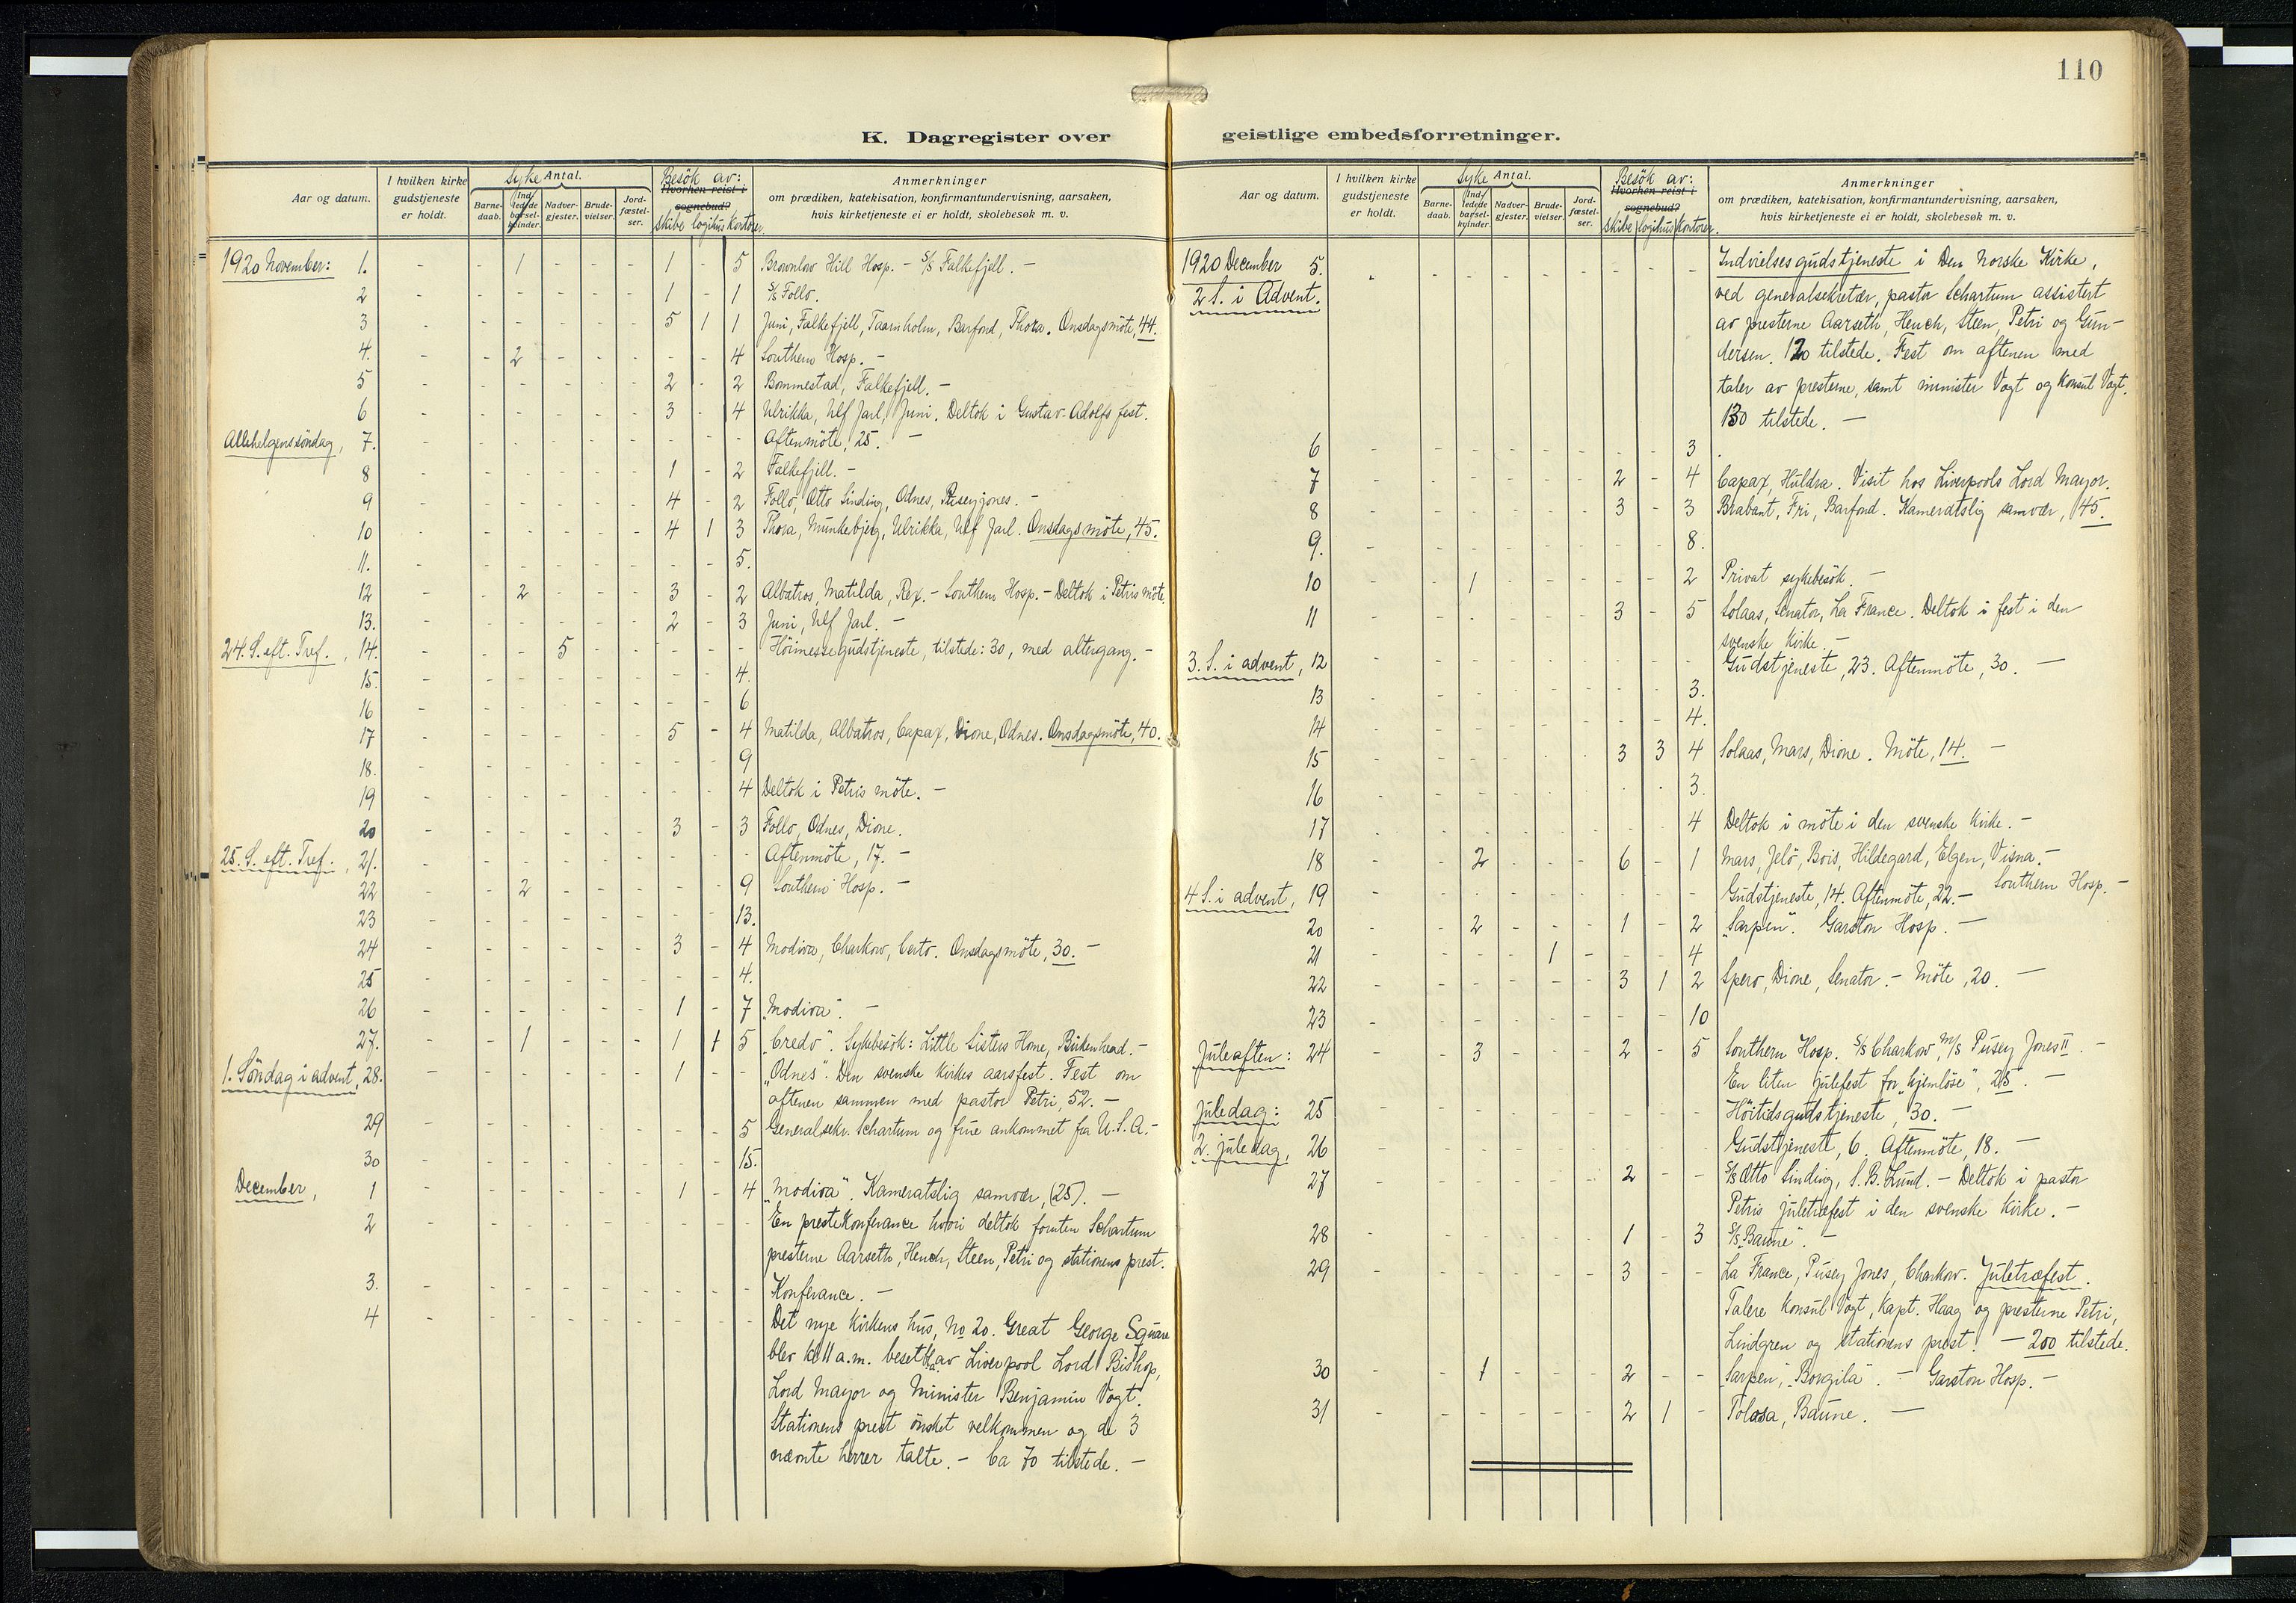 110
K. Dagregister over geistlige embedsforretninger.
Aar og datum. I hvilken kirke gudstjeneste er holdt. Syke Antal. Barne-daab. Ind-ledede barsel-kvinder. Nadver-gjester. Brude-vielser. Jord-fæstel-ser. Besök av: Hvorhen reist i sognebud? skibe logihus kontorer. Anmerkninger om prædiken, katekisation, konfirmantundervisning, aarsaken, hvis kirketjeneste ei er holdt, skolebesøk m. v.
1920 November: 1. - - 1 - - - 1 - 5 Brownlow Hill Hosp. - S/S Falkefjell. -
2 - - - - - - 1 - 1 S/S Follo.
3 - - - - - - 5 1 1 Juni, Falkefjell, Taarnholm, Barfond, Thora. Onsdagsmöte, 44.
4. - - 2 - - - - - 4 Southern Hosp. -
5 - - - - - - 2 - 2 Bommestad, Falkefjell. -
6 - - - - - - 3 - 4 Ulrikka, Ulf Jarl, Juni. Deltok i Gustav-Adolfs fest.
Allehelgenssöndag, 7. - - - - - - - - - Aftenmöte, 25. -
8 - - - - - - 1 - 2 Falkefjell. -
9 - - - - - - 4 - 2 Follo, Otto Sinding, Odnes, Puseyjones. -
10 - - - - - - 4 1 3 Thora, Munkebjerg, Ulrikka, Ulf Jarl. Onsdagsmöte, 45.
11. - - - - - - - - 5.
12 - - 2 - - - 3 - 2 Albatros, Matilda, Rex. - Southern Hosp. - Deltok i Petris möte.
13. - - - - - - 2 - 3 Juni, Ulf Jarl. -
24. S. eft. Tref., 14. - - - 5 - - - - - Höimessegudstjeneste, tilstede: 30, med altergang. -
15. - - - - - - - - 4.
16 - - - - - - - - 6
17 - - - - - - 5 - 4 Matilda, Albatros, Capax, Dione, Odnes. Onsdagsmöte, 40.
18. - - - - - - - - 9
19 - - - - - - - - 4 Deltok i Petris möte. -
20 - - - - - - 3 - 3 Follo, Odnes, Dione.
25. S. eft. Tref., 21. - - - - - - - - - Aftenmöte, 17. -
22 - - 2 - - - - - 9 Southern Hosp. -
23 - - - - - - - - 13.
24 - - - - - - 3 - 4 Modiva, Charkow, Certo. Onsdagsmöte, 30. -
25 - - - - - - - - 4.
26 - - - - - - 1 - 7 "Modiva". -
27. - - 1 - - - 1 1 5 "Credo". Sykebesök: Little Sisters Home, Birkenhead. -
1. Söndag i advent, 28. - - - - - - 1 - - "Odnes". Den svenske kirkes aarsfest. Fest om
aftenen sammen med pastor Petri, 52. -
29 - - - - - - - - 5 Generalsekr. Schartum og frue ankommet fra U.S.A. -
30 - - - - - - - - 15.
December, 1 - - - - - - 1 - 4 "Modiva". Kameratslig samvær, (25). -
2 - - - - - - - - - En prestekonferance hvori deltok foruten Schartum
presterne Aarseth, Hench, Steen, Petri og stationens prest.
3. - - - - - - - - - Konferance. -
4 - - - - - - - - - Det nye kirkens hus, No 20. Great George Square
blev kl 11 a.m. besetkta av Liverpool Lord Bishop,
Lord Mayor og Minister Benjamin Vogt.
Stationens prest önsket velkommen og de 3
nævnte herrer talte. - Ca 70 tilstede. -
Aar og datum. I hvilken kirke gudstjeneste er holdt. Syke Antal. Barne-daab. Ind-ledede barsel-kvinder. Nadver-gjester. Brude-vielser. Jord-fæstel-ser. Besök av: Hvorhen reist i sognebud? skibe logihus kontorer. Anmerkninger om prædiken, katekisation, konfirmantundervisning, aarsaken, hvis kirketjeneste ei er holdt, skolebesøk m. v.
1920 December 5. - - - - - - - - - Indvielsesgudstjeneste i Den Norske Kirke,
2 S. i Advent. ved generalsekretær, pastor Schartum assistert
av presterne Aarseth, Hench, Steen, Petri og Gun-
dersen. 120 tilstede. Fest om aftenen med
taler av presterne, samt minister Vogt og konsul Vogt.
130 tilstede. -
6 - - - - - - - - 3
7 - - - - - - 2 - 4 Capax, Huldra. Visit hos Liverpools Lord Mayor.
8 - - - - - - 3 - 3 Brabant, Fri, Barfond. Kameratslig samvær, 45.
9. - - - - - - - - 8.
10 - - 1 - - - - - 2 Privat sykebesök. -
11 - - - - - - 3 - 5 Solaas, Senator, La France. Deltok i fest i den
svenske kirke. -
3. S. i advent, 12 - - - - - - - - - Gudstjeneste, 23. Aftenmöte, 30. -
13 - - - - - - - - 3.
14 - - - - - - - - 4.
15 - - - - - - 3 3 4 Solaas, Mars, Dione. Möte, 14. -
16 - - - - - - - - 3.
17 - - - - - - - - 4 Deltok i möte i den svenske kirke. -
18 - - 2 - - - 6 - 1 Mars, Jelö, Bois, Hildegard, Elgen, Visna. -
Southern Hosp. -
4 S. i advent, 19 - - - - - - - - - Gudstjeneste, 14. Aftenmöte, 22. -
20 - - 2 - - - 1 - 2 "Sarpen". Garston Hosp. -
21 - - - - 1 - - - 4
22 - - - - - - 3 1 2 Spero, Dione, Senator. - Möte, 20. -
23 - - - - - - - - 10
Juleaften: 24 - - 3 - - - 2 - 5 Southern Hosp. S/S Charkow, M/S Pusey Jones II. -
En liten julefest for "hjemlöse", 25. -
Juledag: 25 - - - - - - - - - Höitidsgudstjeneste, 30. -
2. juledag, 26 - - - - - - - - - Gudstjeneste, 6. Aftenmöte, 18. -
27 - - - - - - 2 - - S/S Otto Sinding, S. B. Lund. - Deltok i pastor
Petris juletræfest i den svenske kirke. -
28 - - - - - - 1 - 3 S/S "Baune". -
29 - - - - - - 3 - - La France, Pusey Jones, Charkow. Juletræfest.
Talere konsul Vogt, Kapt. Haag og presterne Petri,
Lindgren og stationens prest. - 200 tilstede.
30 - - 1 - - - 2 - - "Sarpen", "Borgila". - Garston Hosp. -
31 - - - - - - 2 1 - Tolosa, Baune. -